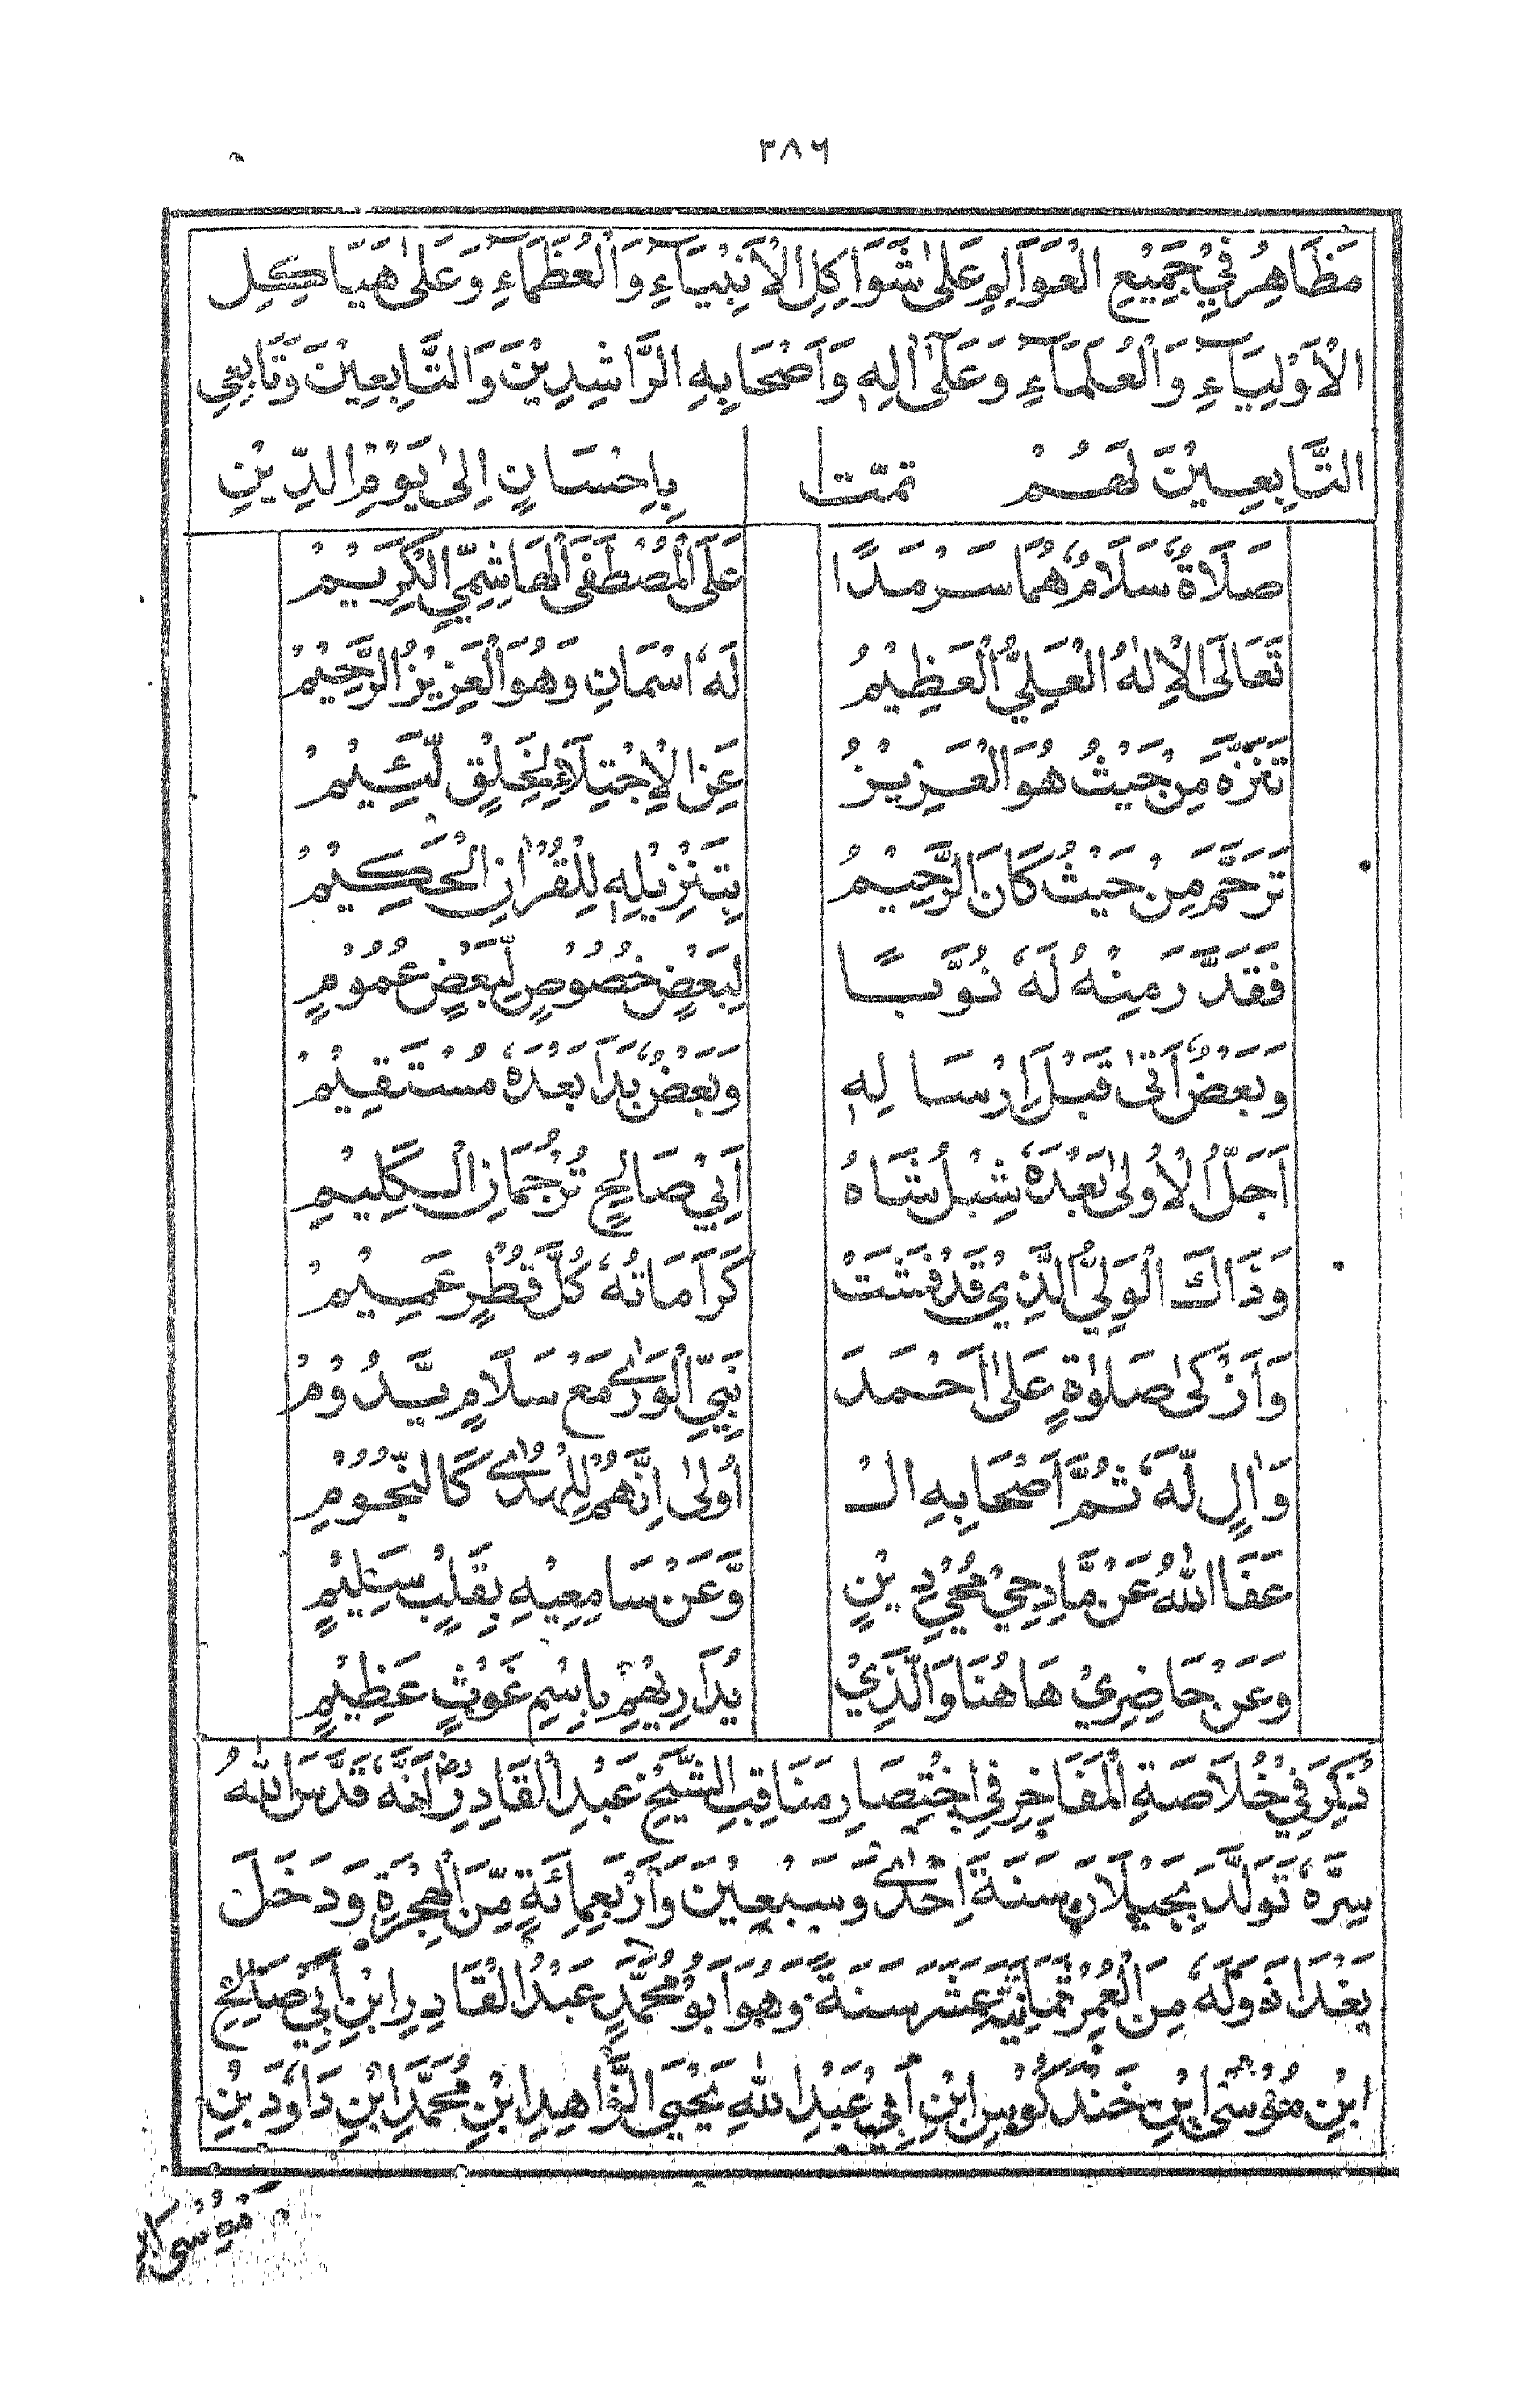 ٣٨٦
مَظَاهِرُ فِيْ جَمِيْعِ الْعَوَالِمِ عَلىٰ شَوَاكِلِ الْاَنْبِيَآءِ وَالْعُظَمَآءِ وَعَلىٰ هَيَاكِلِ
الْاَوْلِيَآءِ وَالْعُلَمَآءِ وَعَلٰٓى اٰلِهٖ وَاَصْحَابِهِ الرَّاشِدِيْنَ وَالتَّابِعِيْنَ وَتَابِعِي
التَّابِعِيْنَ لَهُمْ تمّت بِاِحْسَانٍ اِلىٰ يَوْمِ الدِّيْنِ
صَلَاةٌ سَلَامٌ هُمَا سَرْمَدًا عَلَى الْمُصْطَفَى الْهَاشِمِيِّ الْكَرِيْمْ
تَعَالَى الْاِلٰهُ الْعَلِيُّ الْعَظِيْمُ لَهٗ اسْمَانِ وَهُوَ الْعَزِيْزُ الرَّحِيْمُ
تَنَزَّهَ مِنْ حَيْثُ هُوَ الْعَزِيْزُ عَنِ الْاِجْتِلَاءِ لِخَلْقٍ لَّئِيْمْ
تَرَحَّمَ مِنْ حَيْثُ كَانَ الرَّحِيْمُ بِتَنْزِيْلِهٖ لِلْقُرْاٰنِ الْحَكِيْمْ
فَقَدَّرَ مِنْهُ لَهٗ نُوَّبًا لِبَعْضٍ خُصُوْصٍ لِّبَعْضٍ عُمُوْمٍ
وَبَعْضٌ اَتىٰ قَبْلَ اِرْسَالِهٖ وَبَعْضٌ بَدَا بَعْدَهٗ مُسْتَقِيْمْ
اَجَلُّ الْاُولىٰ بَعْدَهٗ شِبْلُ شَاهُ اَبِيْ صَالِحٍ تُرْجُمَانِ الْكَلِيْمِ
وَذَاكَ الْوَلِيُّ الَّذِيْ قَدْ فَشَتْ كَرَامَاتُهٗ كُلَّ قُطْرٍ عَمِيْمْ
وَاَزْكىٰ صَلوٰةٍ عَلىٰ اَحْمَدَ نَبِيِّ الْوَرٰى مَعْ سَلَامٍ يَّدُوْمُ
وَاٰلٍ لَّهٗ ثُمَّ اَصْحَابِهِ الْ اُولىٰ اِنَّهُمْ لِلْهُدٰى كَالنُّجُوْمْ
عَفَا اللّٰهُ عَنْ مَّادِحِيْ مُحْيِ دِيْنٍ وَّعَنْ سَامِعِيْهِ بِقَلْبٍ سَلِيْمٍ
وَعَنْ حَاضِرِيْ هَاهُنَا وَالَّذِيْ يُدَارِيْهِمِ بِاسْمِ غَوْثٍ عَظِيْمٍ
ذُكِرَ فِيْ خُلَاصَةِ الْمَفَاخِرِ فِي اخْتِصَارِ مَنَاقِبِ الشَّيْخِ عَبْدِ الْقَادِرِ رض اَنَّهٗ قَدَّسَ اللّٰهُ
سِرَّهٗ تَوَلَّدَ بِجِيْلَانَ سَنَةَ اِحْدٰى وَسَبْعِيْنَ وَاَرْبَعِمِائَةٍ مِّنَ الْهِجْرَةِ وَدَخَلَ
بَغْدَاذَ وَلَهٗ مِنَ الْعُمْرِ ثَمَانِيَةَ عَشَرَ سَنَةً وَهُوَ اَبُوْ مُحَمَّدٍ عَبْدُ الْقَادِرِ ابْنِ اَبِيْ صَالِحِ
ابْنِ مُوْسَى ابْنِ جَنْدَكُوْسِ ابْنِ اَبِيْ عَبْدِ اللّٰهِ يَحْيَى الزَّاهِدِ ابْنِ مُحَمَّدِ ابْنِ دَاوٗدَ بْنِ
مُوْسَى